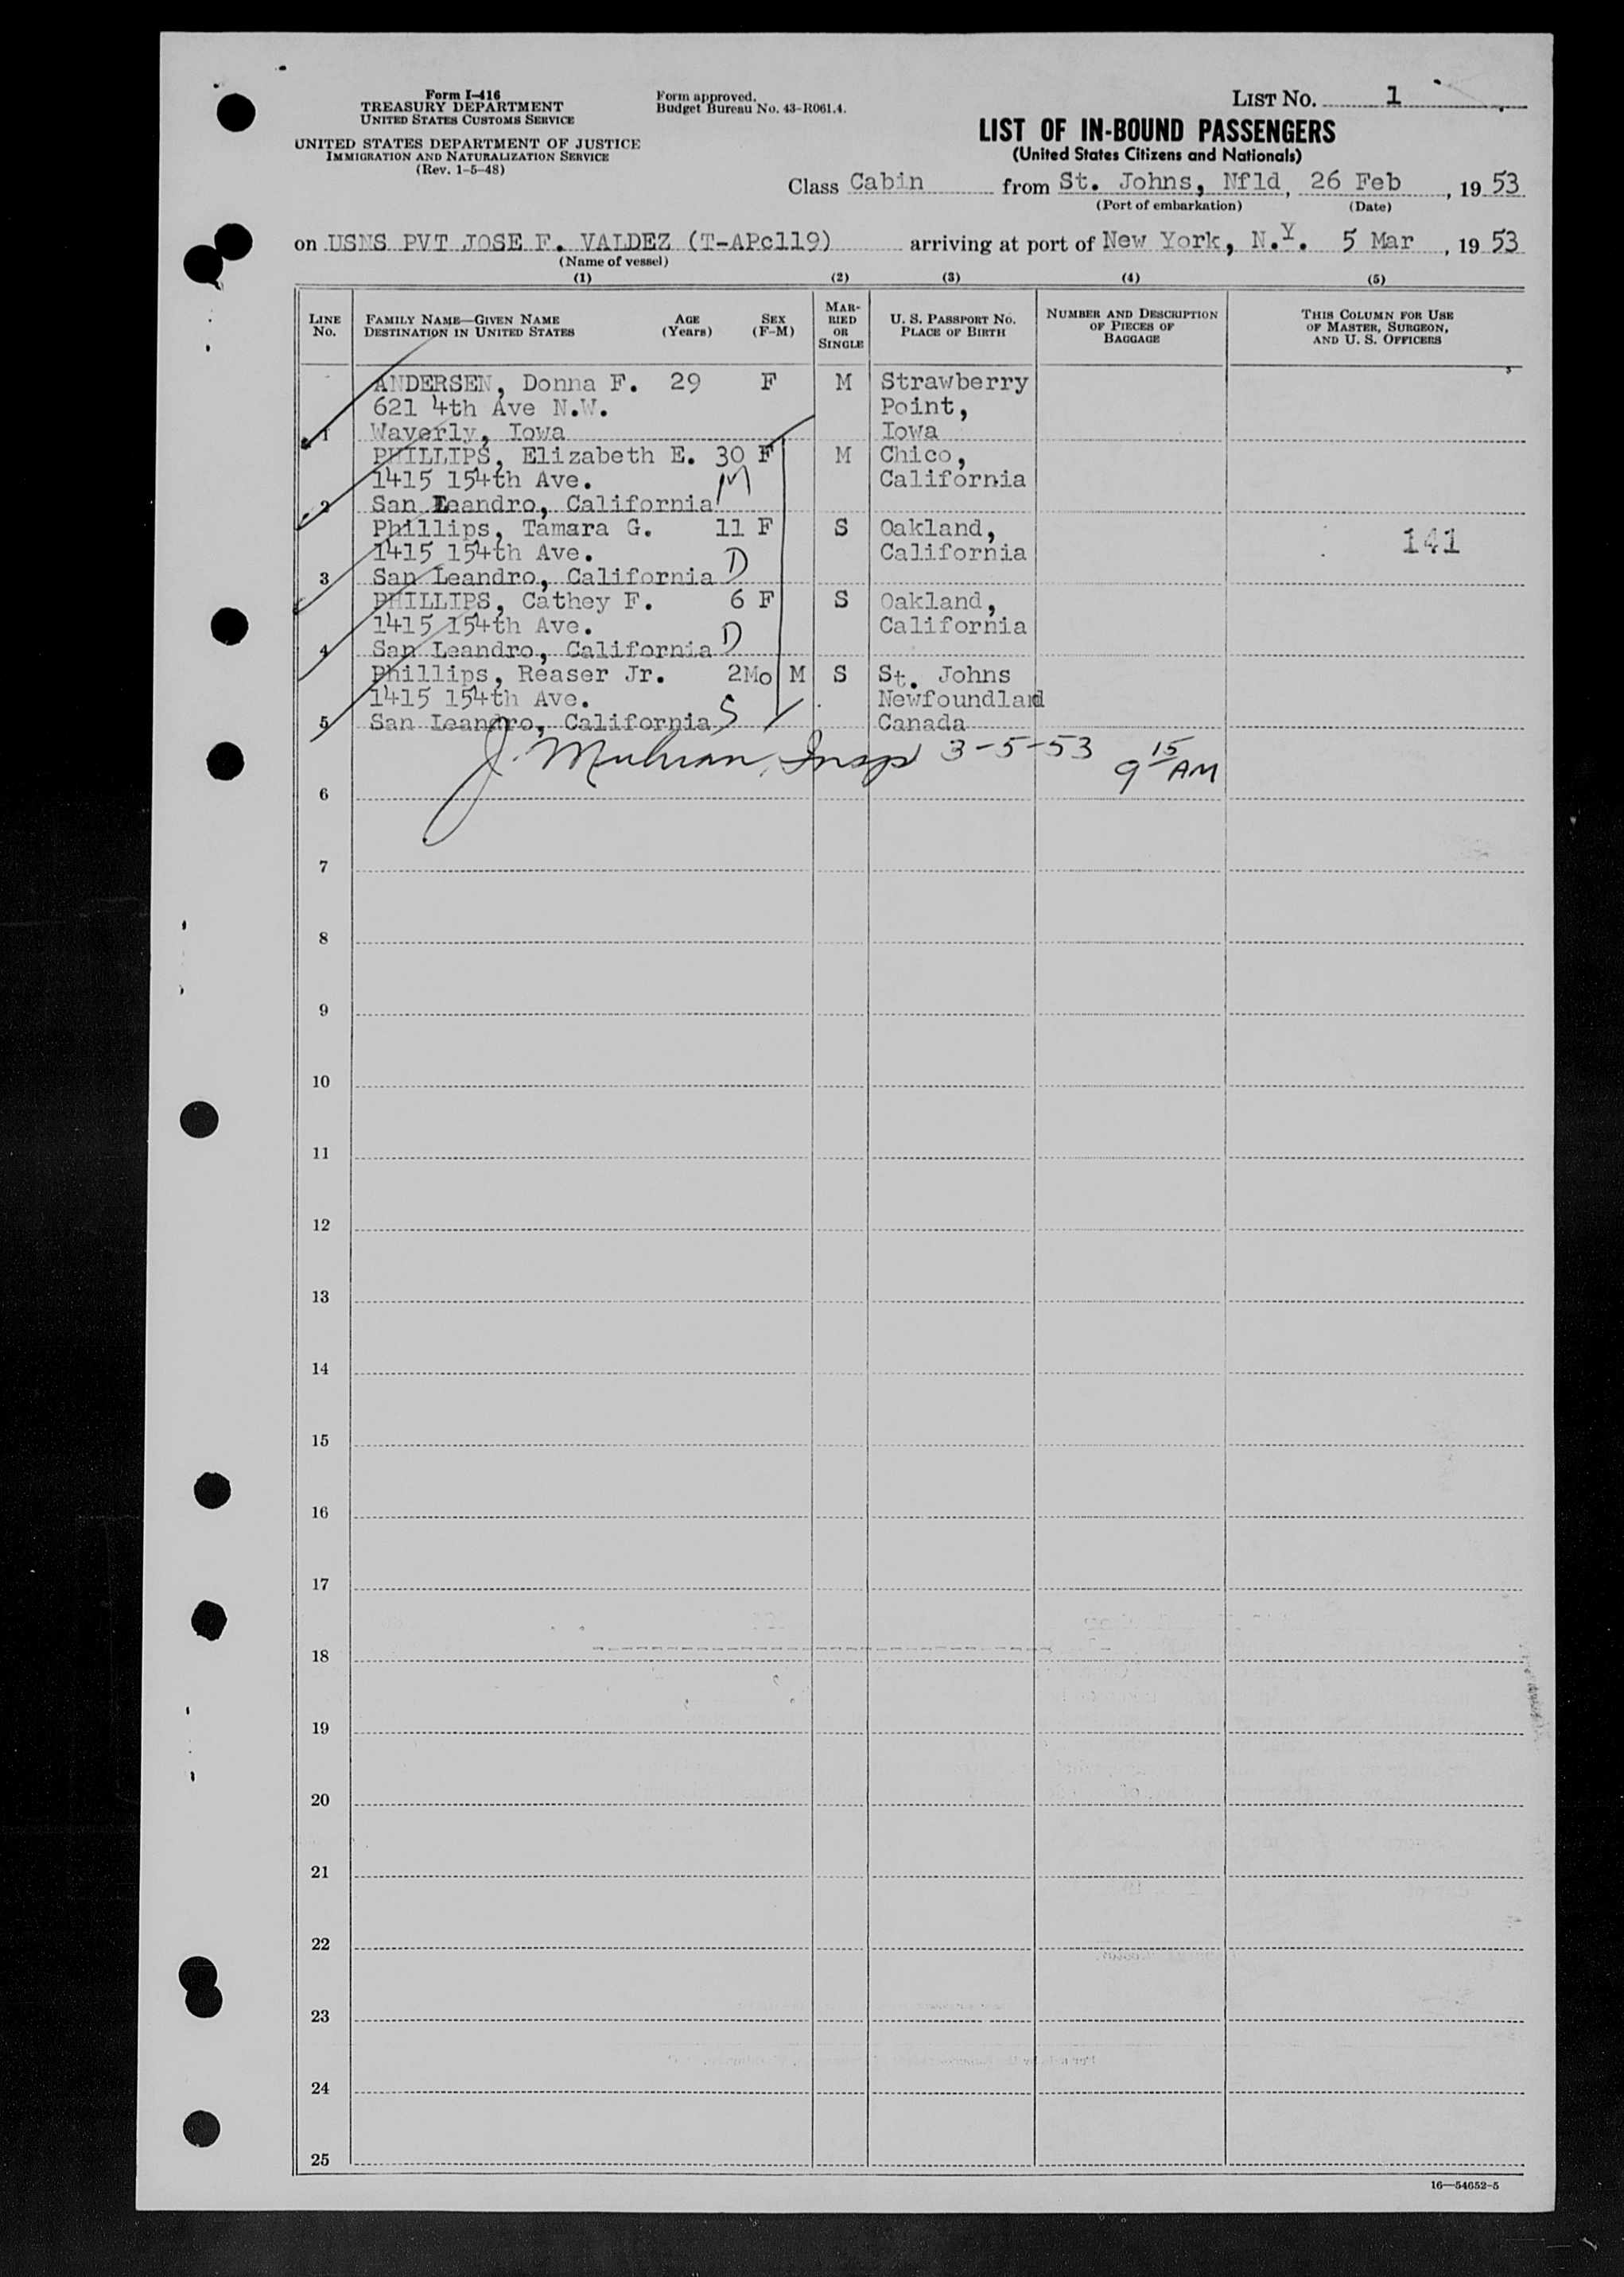 Form I-416
TREASURY DEPARTMENT
UNITED STATES CUSTOMS SERVICE
UNITED STATES DEPARTMENT OF JUSTICE
IMMIGRATION AND NATURALIZATION SERVICE
(Rev. 1-5-48)
Form approved.
Budget Bureau No. 43-R061.4.
LIST NO. 1
LIST OF IN-BOUND PASSENGERS
(United States Citizens and Nationals)
Class Cabin from St. Johns, Nfld, 26 Feb, 1953
(Port of embarkation) (Date)
on USNS PVT JOSE F. VALDEZ (T-APc119) arriving at port of New York, N.Y. 5 Mar, 1953
(Name of vessel)
(1) (2) (3) (4) (5)
LINE No. FAMILY NAME—GIVEN NAME DESTINATION IN UNITED STATES AGE (Years) SEX (F-M) MARRIED OR SINGLE U. S. PASSPORT NO. PLACE OF BIRTH NUMBER AND DESCRIPTION OF PIECES OF BAGGAGE THIS COLUMN FOR USE OF MASTER, SURGEON, AND U. S. OFFICERS
ANDERSEN, Donna F. 29 F M Strawberry
621 4th Ave N.W. Point,
1 Waverly, Iowa Iowa
PHILLIPS, Elizabeth E. 30 F M Chico,
1415 154th Ave. M California
2 San Leandro, California
Phillips, Tamara G. 11 F S Oakland, 141
1415 154th Ave. California
3 San Leandro, California D
PHILLIPS, Cathey F. 6 F S Oakland,
1415 154th Ave. California
4 San Leandro, California D
Phillips, Reaser Jr. 2Mo M S St. Johns
1415 154th Ave. Newfoundland
5 San Leandro, California S Canada
J. Insp 3-5-53 9 15 AM
6
7
8
9
10
11
12
13
14
15
16
17
18
19
20
21
22
23
24
25
16—54652-5